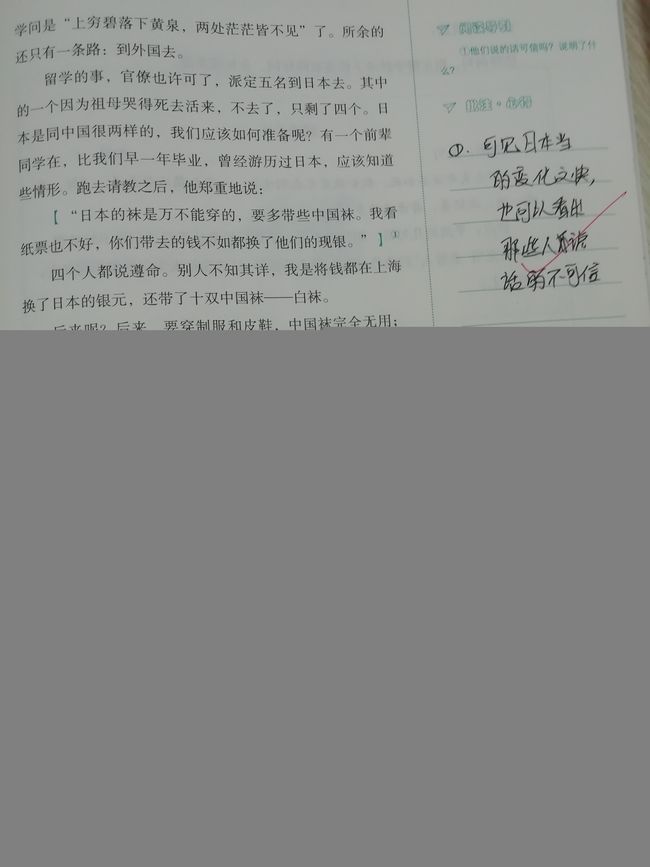 学问是“上穷碧落下黄泉，两处茫茫皆不见”了。所余的
还只有一条路：到外国去。
留学的事，官僚也许可了，派定五名到日本去。其中
的一个因为祖母哭得死去活来，不去了，只剩了四个。日
本是同中国很两样的，我们应该如何准备呢？有一个前辈
同学在，比我们早一年毕业，曾经游历过日本，应该知道
些情形。跑去请教之后，他郑重地说：
【“日本的袜是万不能穿的，要多带些中国袜。我看
纸票也不好，你们带去的钱不如都换了他们的现银。”】①
四个人都说遵命。别人不知其详，我是将钱都在上海
换了日本的银元，还带了十双中国袜——白袜。
后来呢？后来，要穿制服和皮鞋，中国袜完全无用；
①他们说的话可信吗？说明了什
么？
批注·心得
①. 可见日本当
的变化之快，
也可以看出
那些人员说
话的不可信